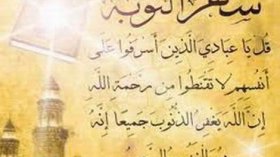 سفر التوبة
قُلْ يَا عِبَادِيَ الَّذِينَ أَسْرَفُوا عَلَى
أَنفُسِهِمْ لَا تَقْنَطُوا مِن رَّحْمَةِ اللَّهِ
إِنَّ اللَّهَ يَغْفِرُ الذُّنُوبَ جَمِيعًا إِنَّهُ